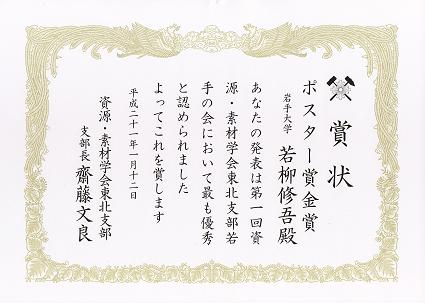 賞状
ポスター賞金賞
岩手大学 若柳修吾殿
あなたの発表は第一回資
源・素材学会東北支部若
手の会において最も優秀
と認められました
よってこれを賞します
平成二十一年一月十二日
資源・素材学会東北支部
支部長 齋藤文良